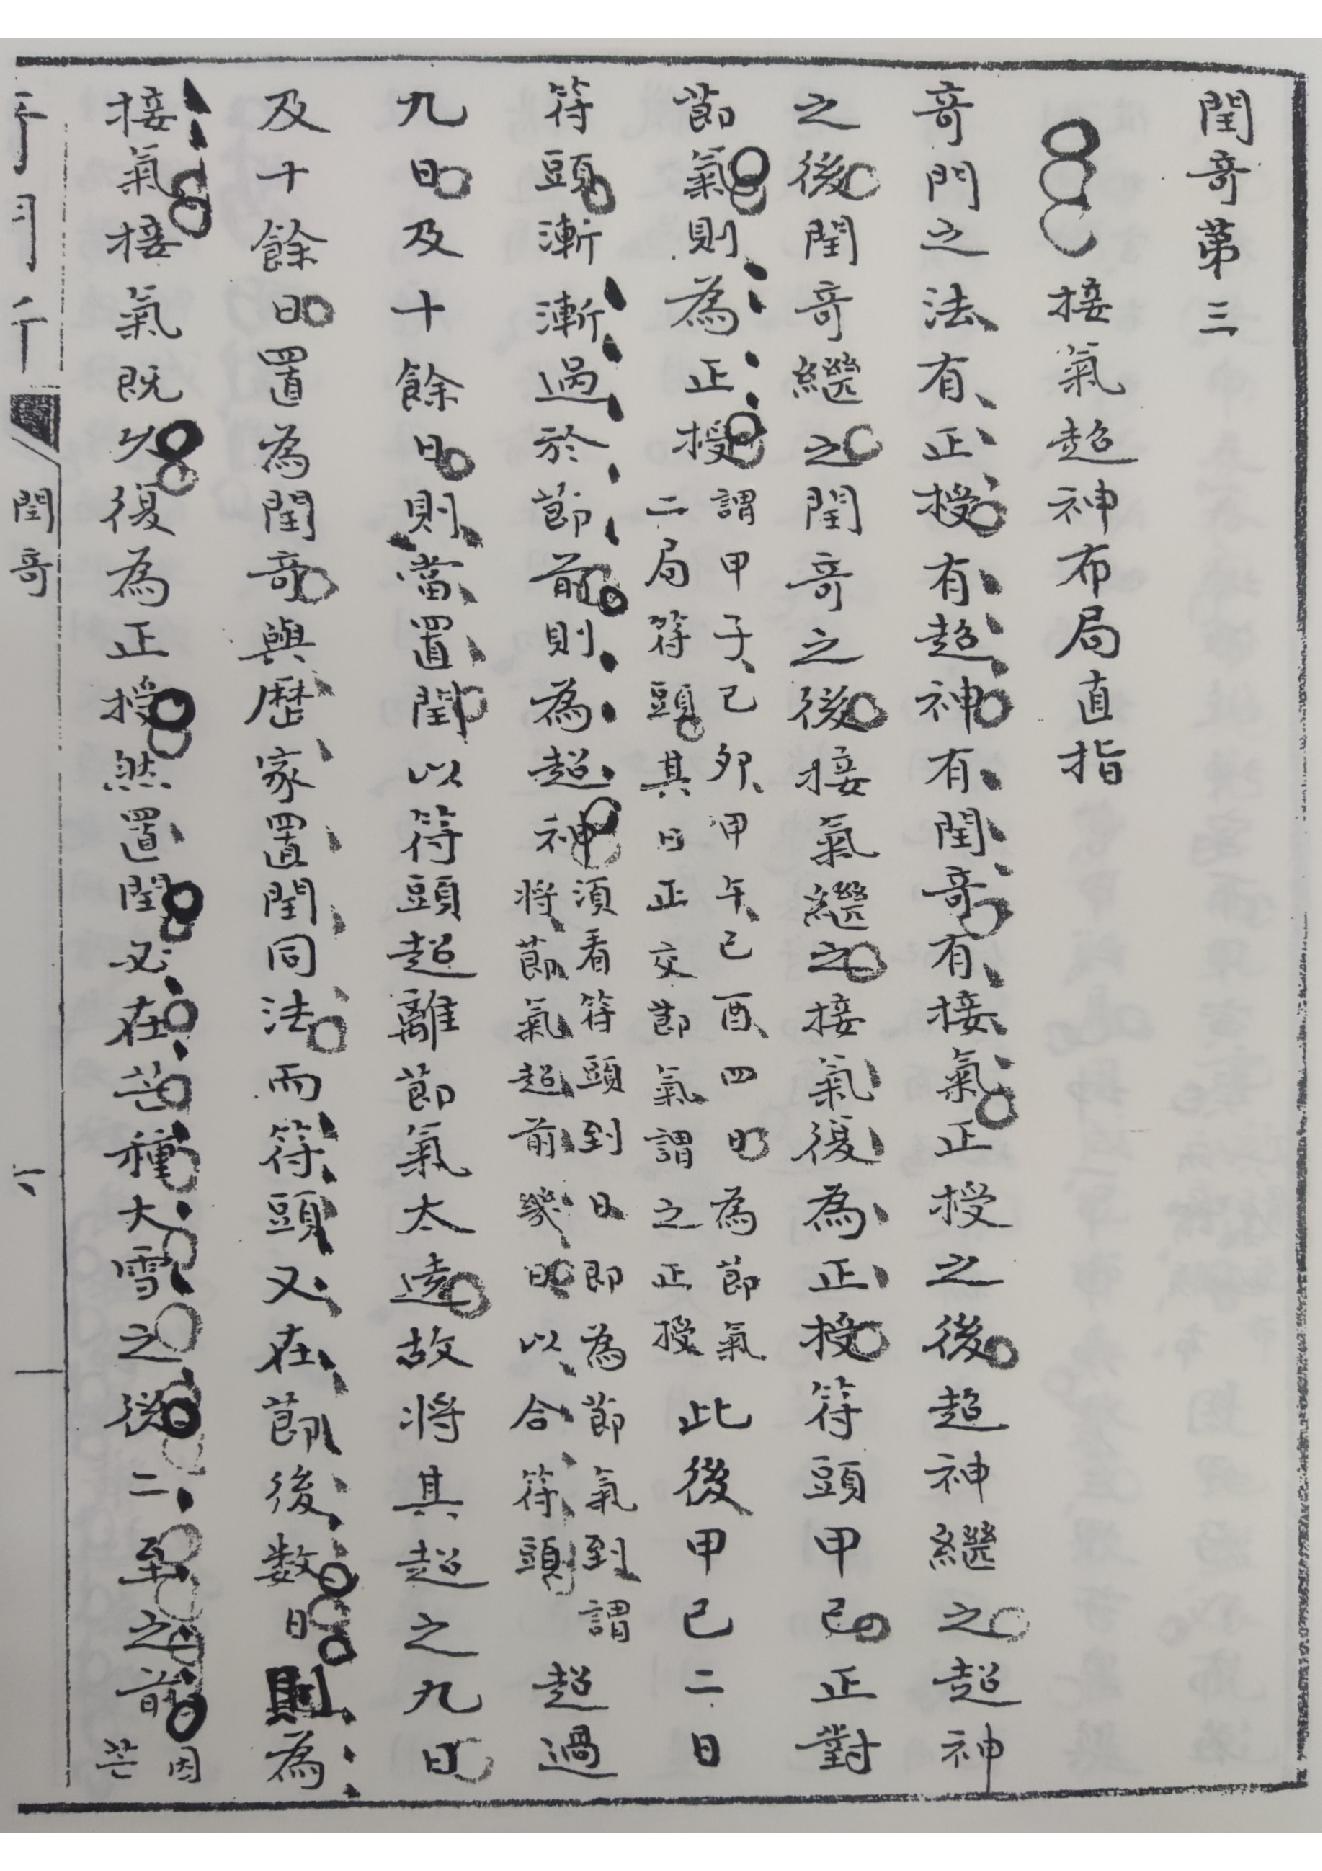 閏奇第三
接氣超神布局直指
奇門之法有正授有超神有閏奇有接氣正授之後超神繼之超神
之後閏奇繼之閏奇之後接氣繼之接氣後為正授符頭甲己正對
節氣則為正授
謂甲子己卯甲午己酉四日為節氣
二局符頭其日正交節氣謂之正授
此後甲己二日
符頭漸漸過於節前則為超神
須看符頭到日即為節氣到謂
將節氣超前幾日以合符頭
超過
九日及十餘日則當置閏以符頭超離節氣太遠故將其超之九日
及十餘日置為閏奇與歷家置閏同法而符頭又在節後数日則為
接氣接氣既久復為正授然置閏必在芒種大雪之後二至之前
因
芒
閏奇